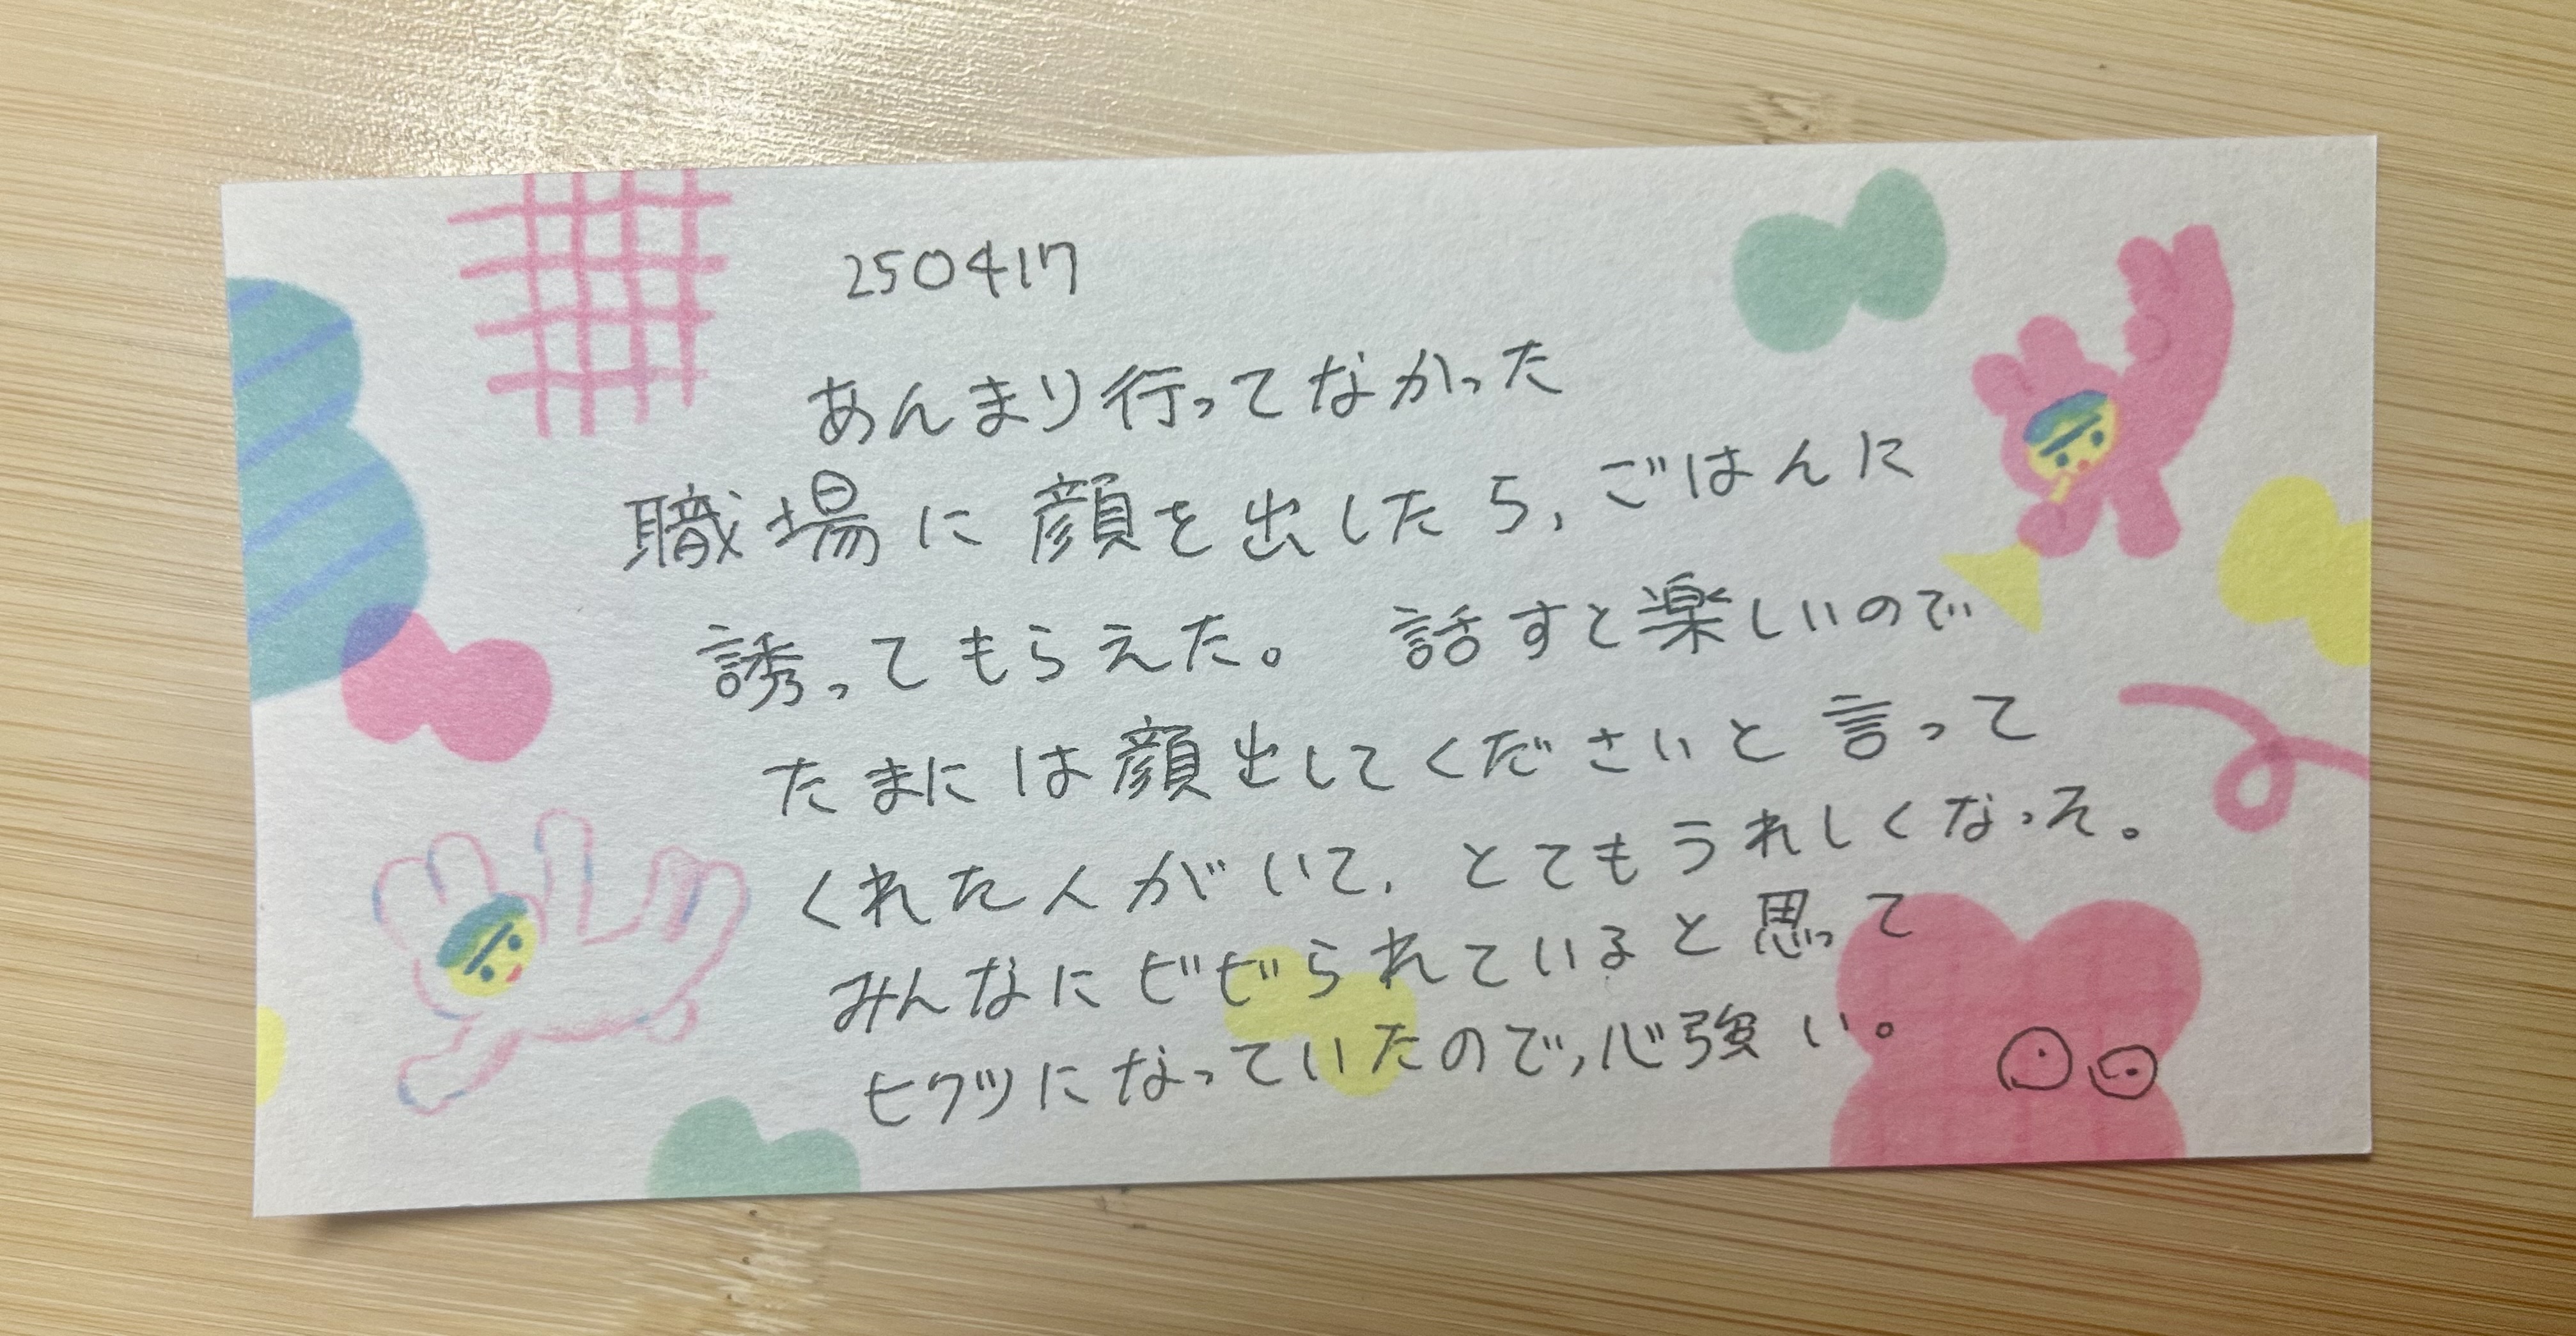 250417
あんまり行ってなかった
職場に顔を出したら、ごはんに
誘ってもらえた。 話すと楽しいので
たまには顔出してくださいと言って
くれた人がいて、とてもうれしくなった。
みんなにビビられていると思って
ヒクツになっていたので、心強い。